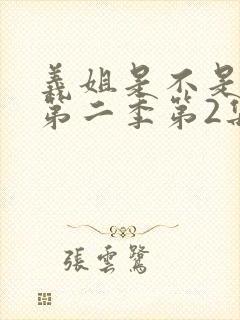 義姐是不是
第二季第2集
張雲鷺